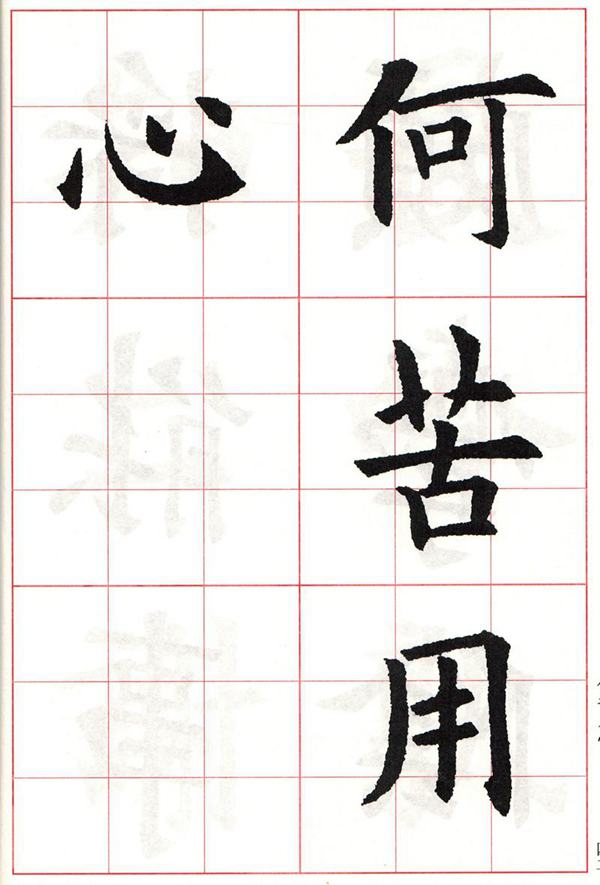 何苦用
心